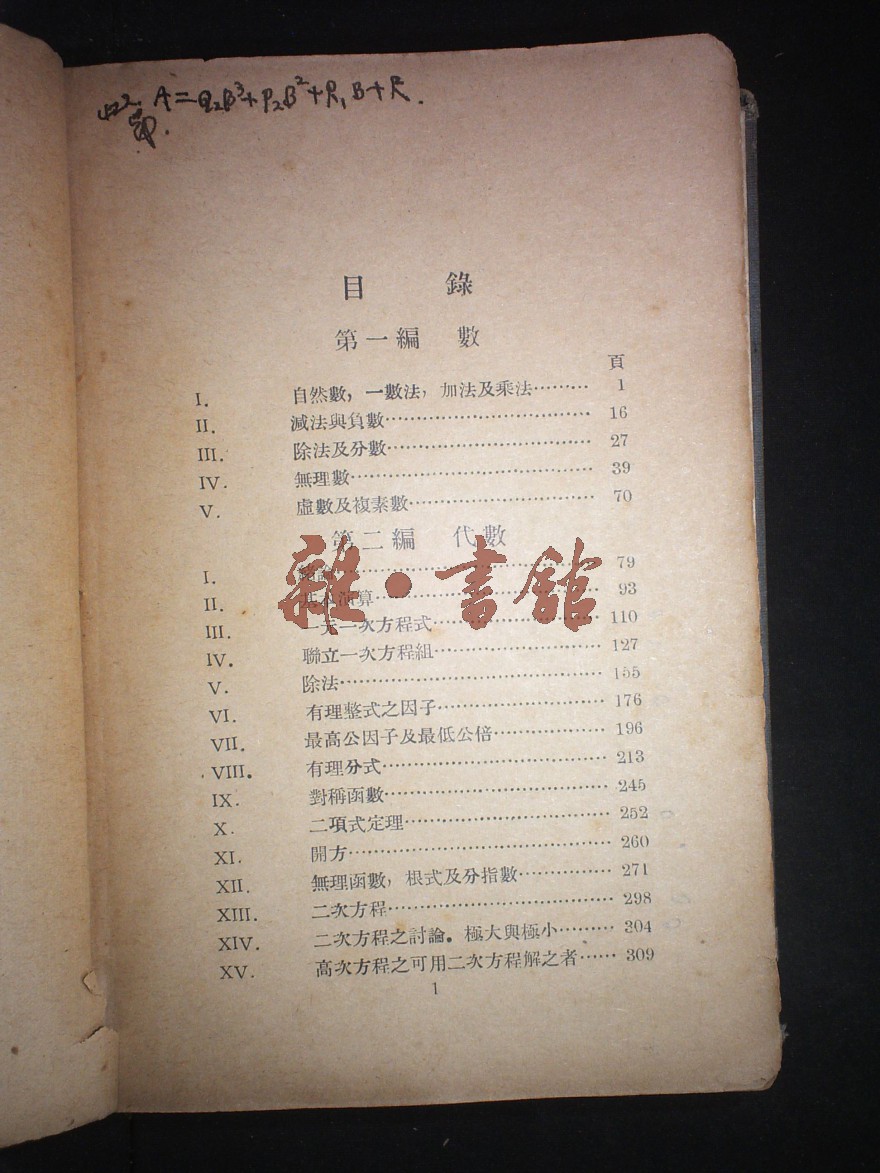 422. A=Q₂B³+P₂B²+R₁B+R.
目 錄
第一編 數
頁
I. 自然數,一數法,加法及乘法……… 1
II. 減法與負數…………………………… 16
III. 除法及分數…………………………… 27
IV. 無理數………………………………… 39
V. 虛數及複素數………………………… 70
第二編 代數
I. ………………………………… 79
II. 基本演算……………………………… 93
III. 一元一次方程式……………………… 110
IV. 聯立一次方程組……………………… 127
V. 除法…………………………………… 155
VI. 有理整式之因子……………………… 176
VII. 最高公因子及最低公倍……………… 196
VIII. 有理分式……………………………… 213
IX. 對稱函數……………………………… 245
X. 二項式定理…………………………… 252
XI. 開方…………………………………… 260
XII. 無理函數,根式及分指數…………… 271
XIII. 二次方程……………………………… 298
XIV. 二次方程之討論。極大與極小……… 304
XV. 高次方程之可用二次方程解之者…… 309
1
雜·書館